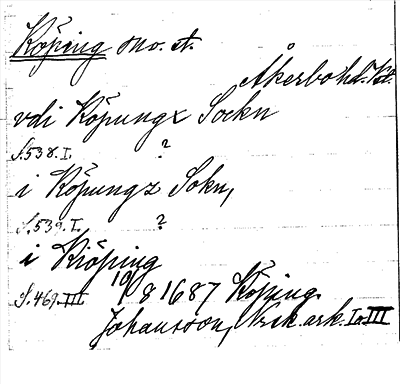 Köping sno. st.
Åkerbo hd. Vst.
vdi Köpungx Sockn
S. 538. I. ?
i Köpungz Sokn,
S. 539. I. ?
i Kiöping
S. 469. III 10/8 1687 Köping.
Johansson, Krik. ark. I o. III